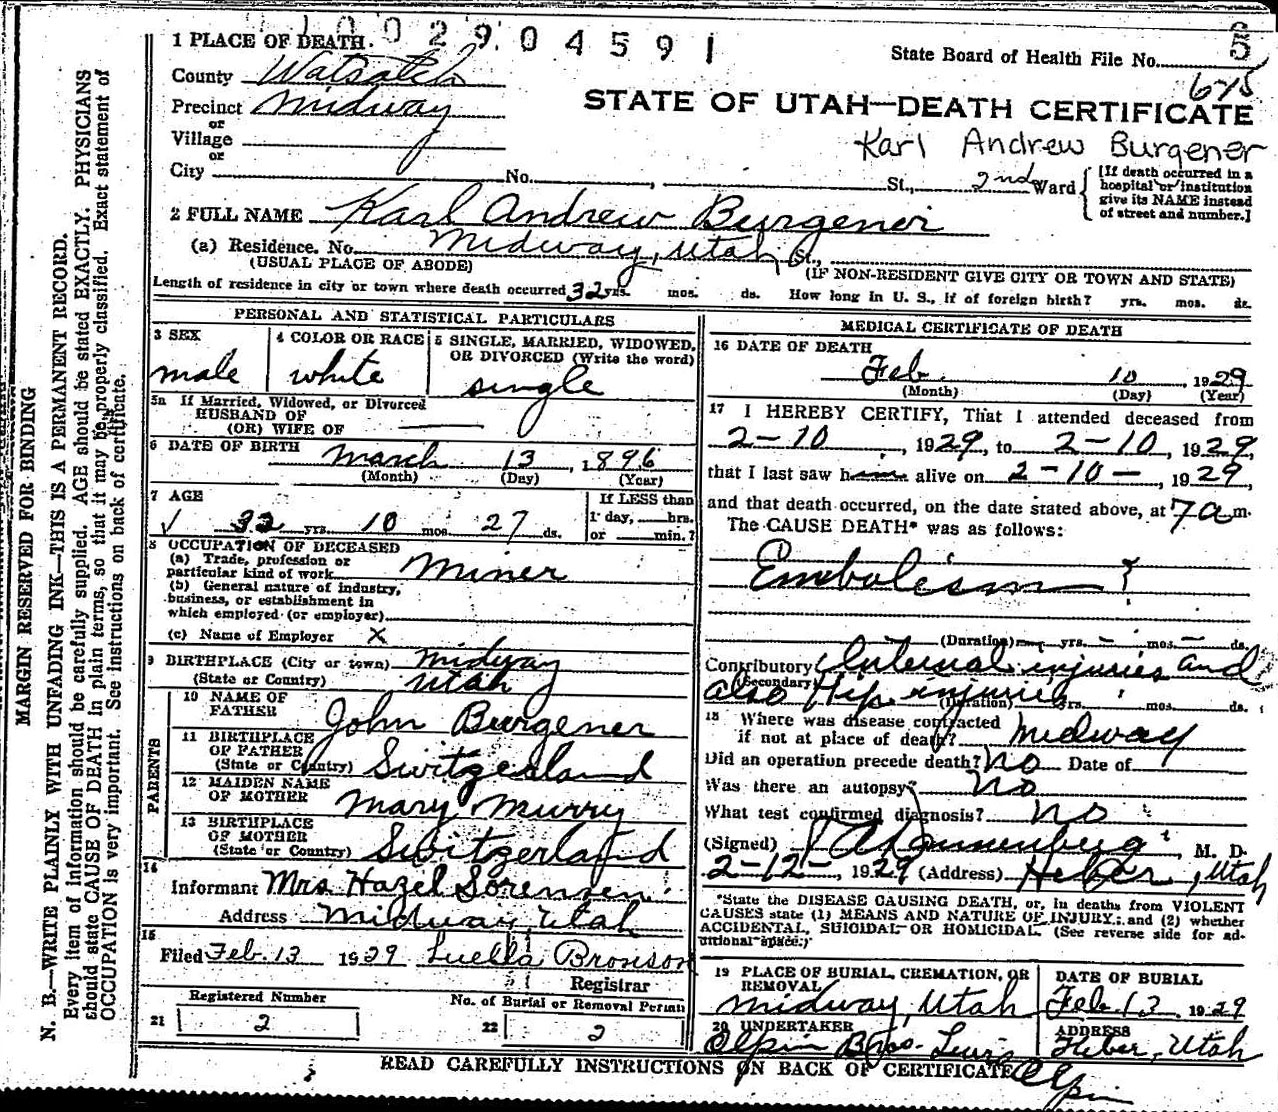 1002904591
1 PLACE OF DEATH.
State Board of Health File No. 5
County Watsatch
675
Precinct Midway
STATE OF UTAH—DEATH CERTIFICATE
or
Village
Karl Andrew Burgener
or
City No. , St., 2nd Ward
[If death occurred in a hospital or institution give its NAME instead of street and number.]
2 FULL NAME Karl Andrew Burgener
(a) Residence. No. Midway, Utah St.,
(USUAL PLACE OF ABODE) (IF NON-RESIDENT GIVE CITY OR TOWN AND STATE)
Length of residence in city or town where death occurred 32 yrs. mos. ds. How long in U. S., if of foreign birth? yrs. mos. ds.
PERSONAL AND STATISTICAL PARTICULARS
3 SEX
male
4 COLOR OR RACE
white
5 SINGLE, MARRIED, WIDOWED,
OR DIVORCED (Write the word)
single
5a If Married, Widowed, or Divorced
HUSBAND OF
(OR) WIFE OF
6 DATE OF BIRTH March 13, 1896
(Month) (Day) (Year)
7 AGE
If LESS than
1 day, hrs.
or min.?
32 yrs. 10 mos. 27 ds.
8 OCCUPATION OF DECEASED
(a) Trade, profession or
particular kind of work Miner
(b) General nature of industry,
business, or establishment in
which employed (or employer)
(c) Name of Employer X
9 BIRTHPLACE (City or town) Midway
(State or Country) Utah
PARENTS
10 NAME OF
FATHER John Burgener
11 BIRTHPLACE
OF FATHER
(State or Country) Switzerland
12 MAIDEN NAME
OF MOTHER Mary Murry
13 BIRTHPLACE
OF MOTHER
(State or Country) Switzerland
14
Informant Mrs Hazel Sorensen
Address Midway Utah
15
Filed Feb. 13 1929 Luella Bronson
Registrar
Registered Number
21 2
No. of Burial or Removal Permit
22 2
MEDICAL CERTIFICATE OF DEATH
16 DATE OF DEATH
Feb 10, 1929
(Month) (Day) (Year)
17 I HEREBY CERTIFY, That I attended deceased from
2-10, 1929, to 2-10, 1929,
that I last saw him alive on 2-10-, 1929,
and that death occurred, on the date stated above, at 7 a m.
The CAUSE DEATH* was as follows:
Embolism
(Duration) yrs. mos. ds.
Contributory Internal injuries and
(Secondary)
also Hip injuries
(Duration) yrs. mos. ds.
18 Where was disease contracted
if not at place of death? Midway
Did an operation precede death? No Date of
Was there an autopsy? No
What test confirmed diagnosis? no
(Signed) M. D.
2-12-, 1929 (Address) Heber, Utah
*State the DISEASE CAUSING DEATH, or, in deaths from VIOLENT
CAUSES state (1) MEANS AND NATURE OF INJURY; and (2) whether
ACCIDENTAL, SUICIDAL OR HOMICIDAL. (See reverse side for ad-
ditional space.)
19 PLACE OF BURIAL, CREMATION, OR
REMOVAL
Midway, Utah
DATE OF BURIAL
Feb. 13, 1929
20 UNDERTAKER
Olpin Bros. Lewis
Olpin
ADDRESS
Heber, Utah
READ CAREFULLY INSTRUCTIONS ON BACK OF CERTIFICATE
MARGIN RESERVED FOR BINDING
N. B.—WRITE PLAINLY WITH UNFADING INK—THIS IS A PERMANENT RECORD.
Every item of information should be carefully supplied. AGE should be stated EXACTLY. PHYSICIANS
should state CAUSE OF DEATH in plain terms, so that it may be properly classified. Exact statement of
OCCUPATION is very important. See instructions on back of certificate.